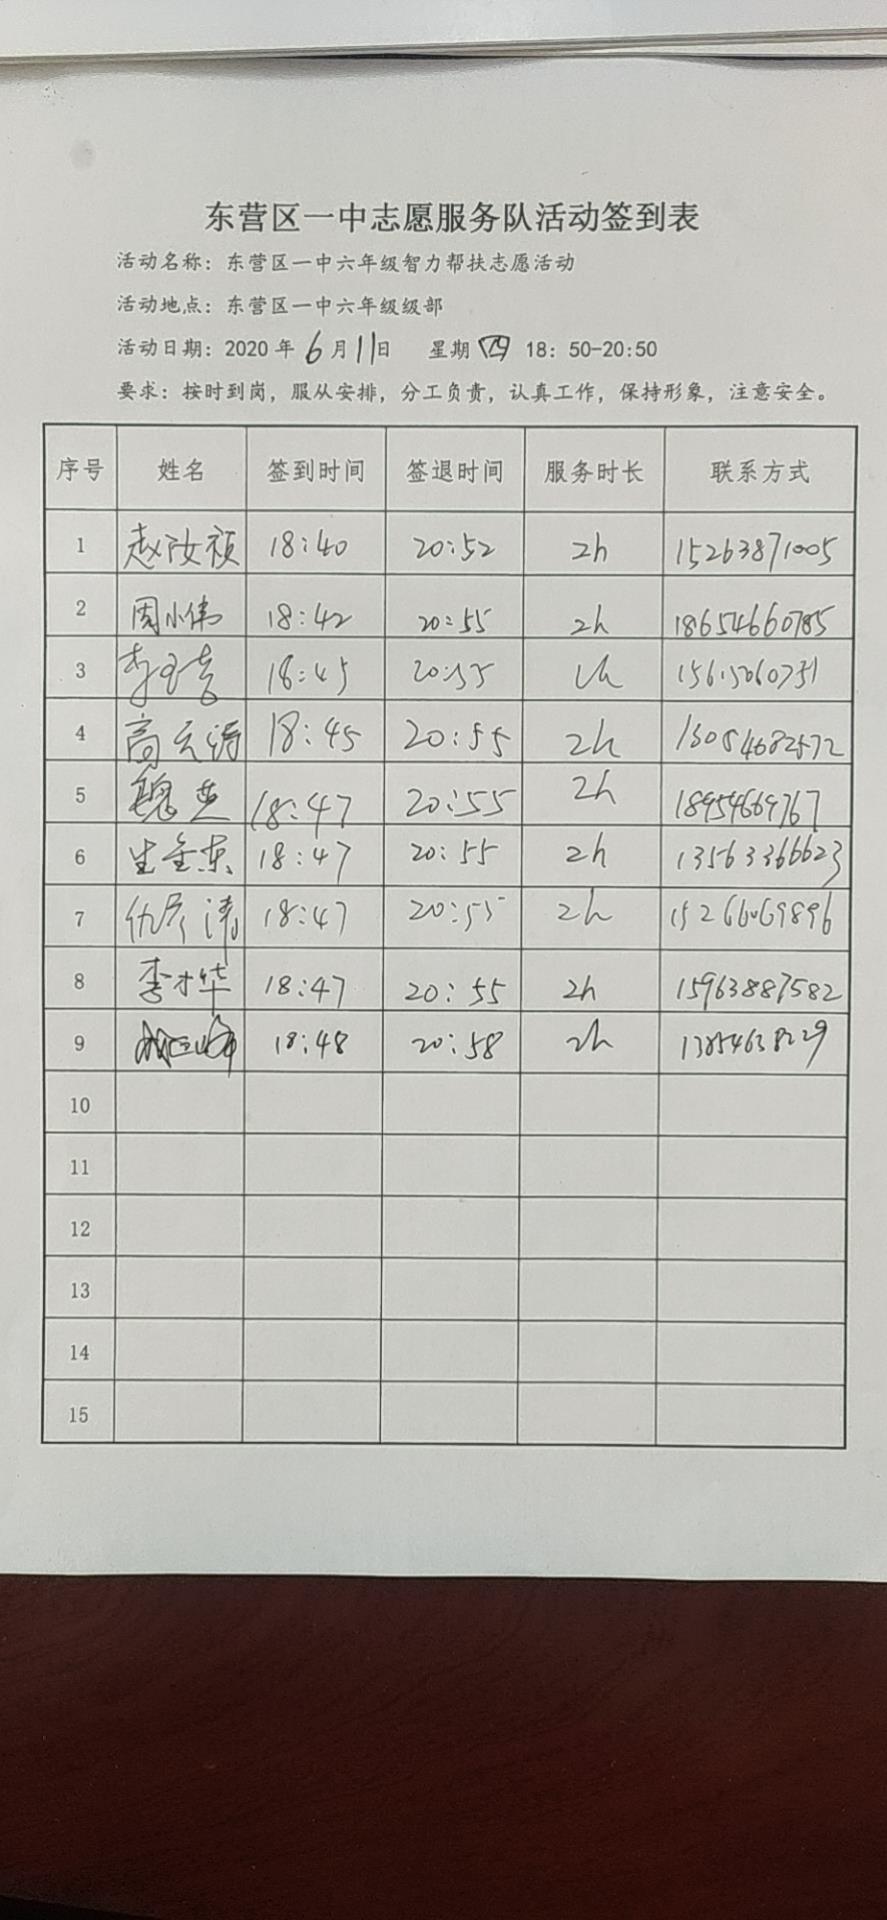 东营区一中志愿服务队活动签到表
活动名称：东营区一中六年级智力帮扶志愿活动
活动地点：东营区一中六年级级部
活动日期：2020 年 6 月 11 日 星期 四 18：50-20:50
要求：按时到岗，服从安排，分工负责，认真工作，保持形象，注意安全。
序号 姓名 签到时间 签退时间 服务时长 联系方式
1 赵改祯 18:40 20:52 2h 15263871005
2 周小伟 18:42 20:55 2h 18654660785
3 18:45 20:55 2h
4 高云涛 18:45 20:55 2h 13054682572
5 魏燕 18:47 20:55 2h 18954669767
6 生金东 18:47 20:55 2h 13563366623
7 仇彦涛 18:47 20:55 2h 15266069896
8 李才华 18:47 20:55 2h 15963887582
9 18:48 20:58 2h
10
11
12
13
14
15